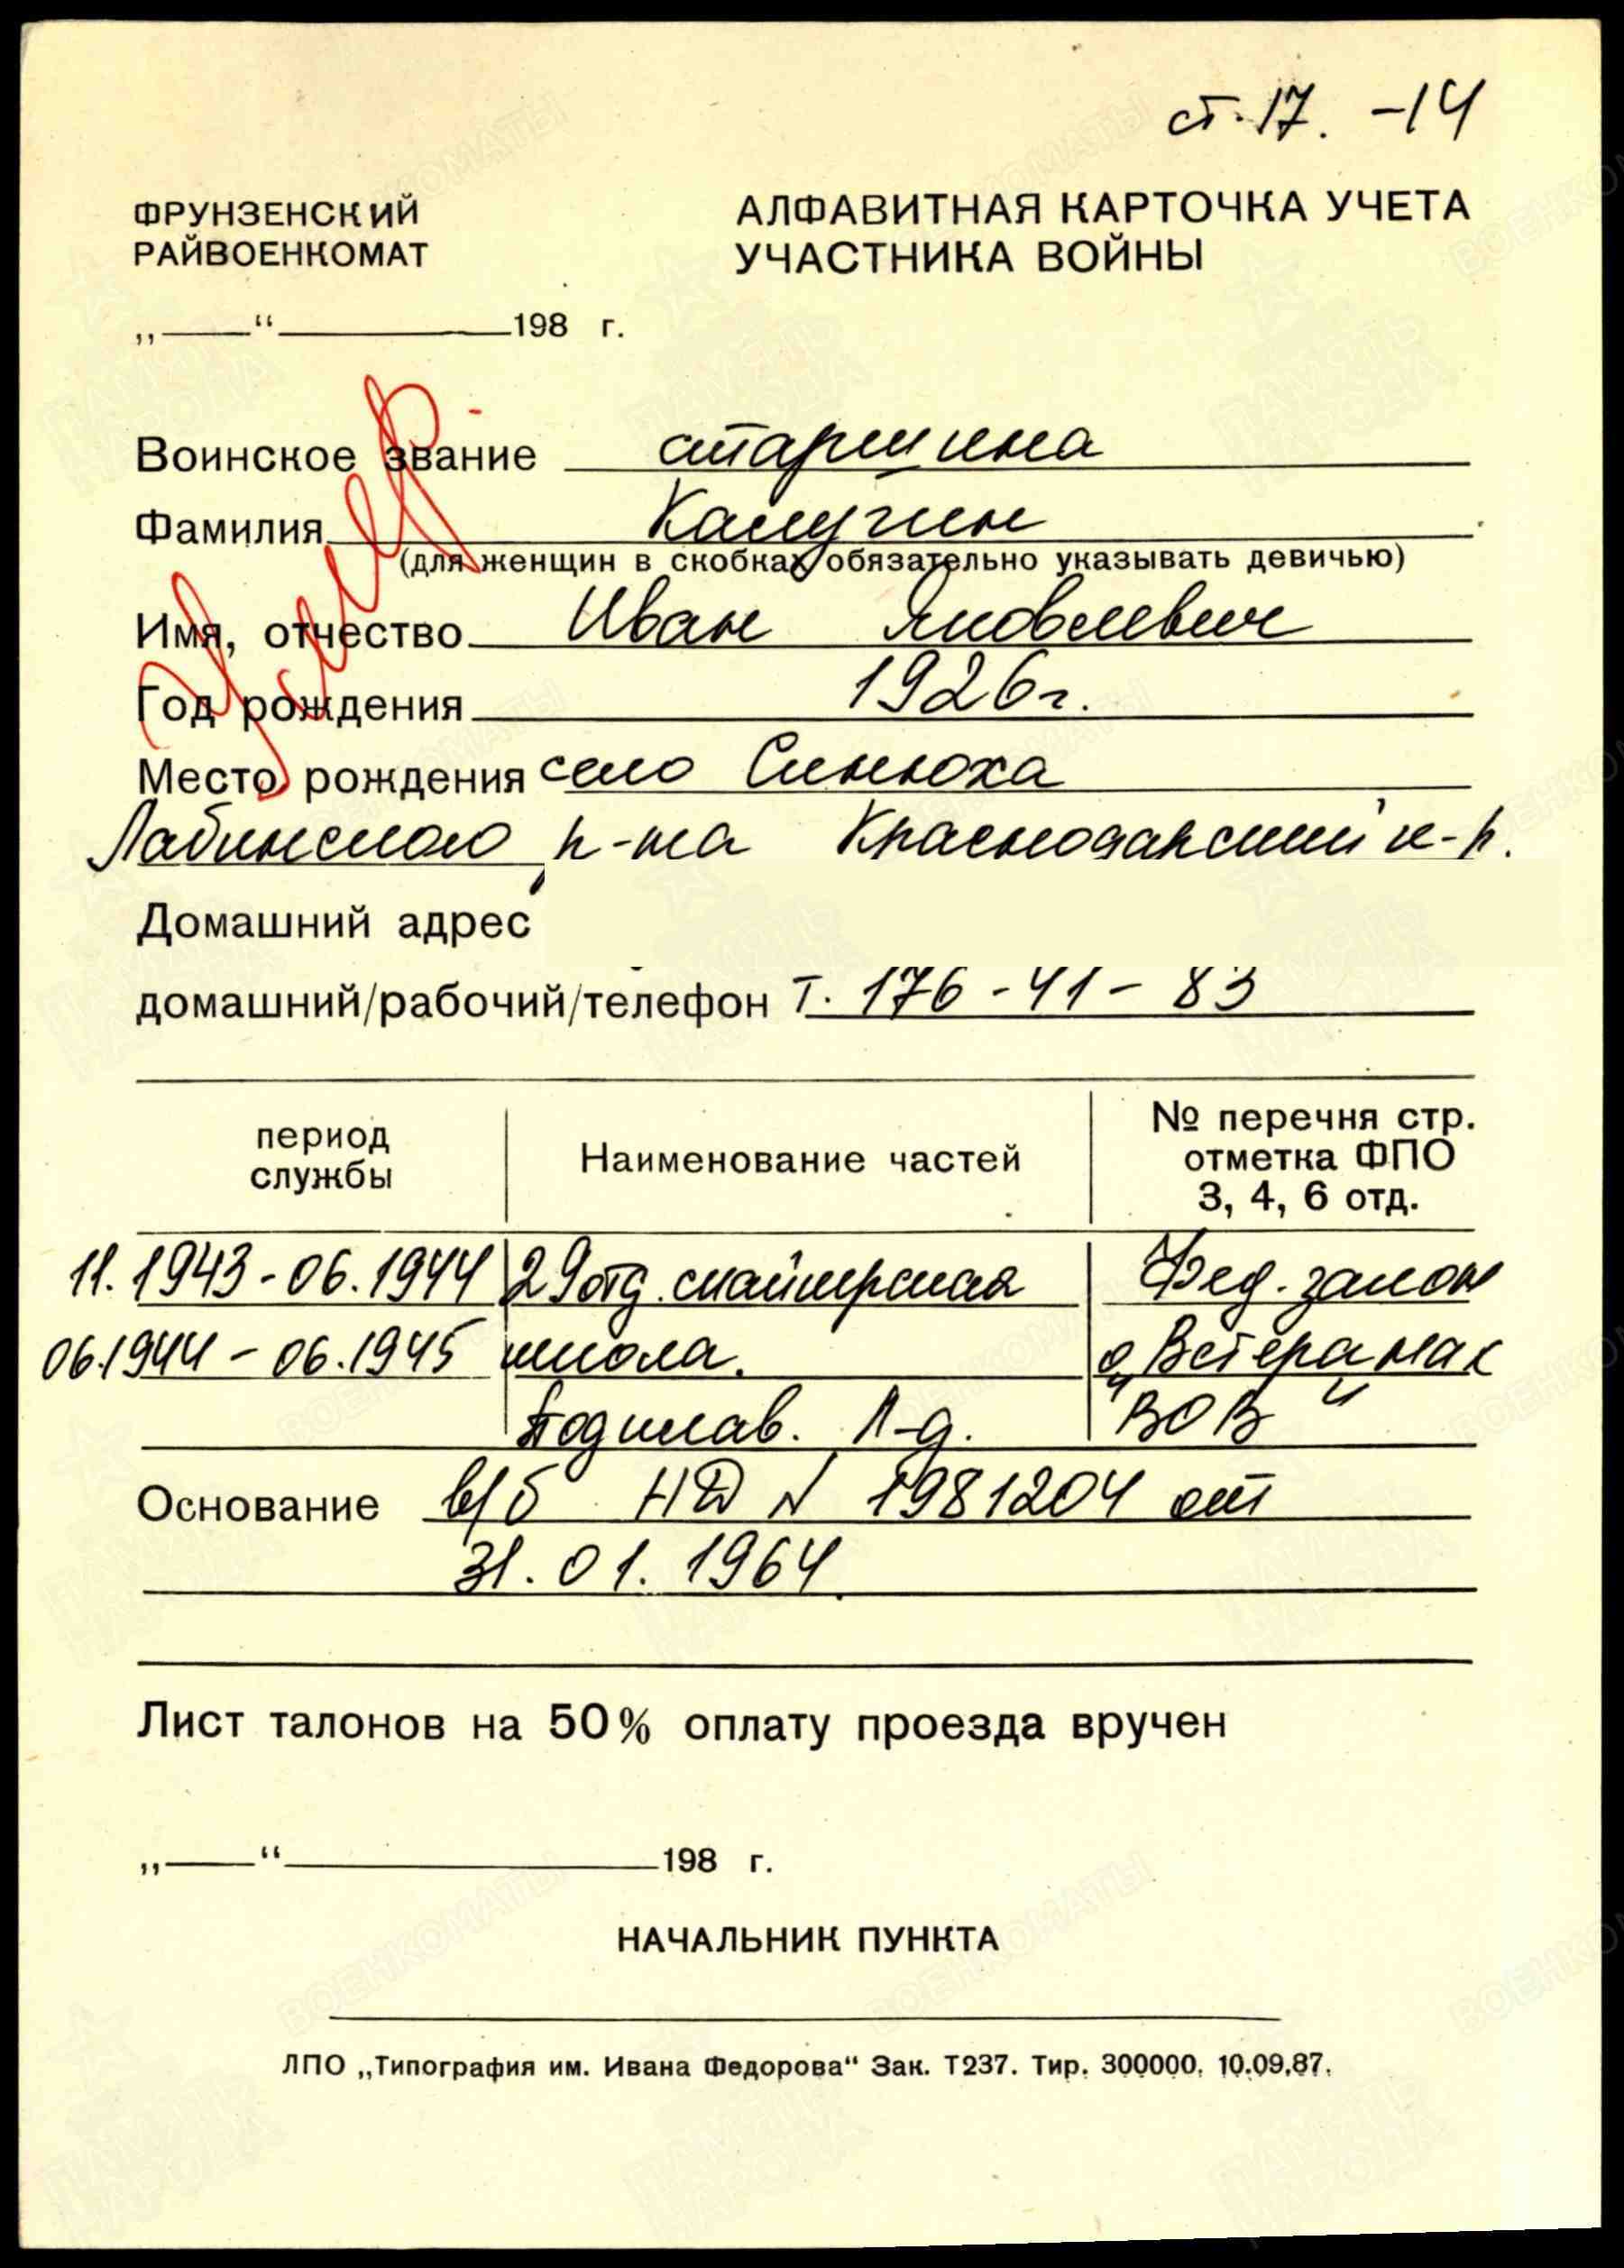 ст. 17. -14
ФРУНЗЕНСКИЙ
РАЙВОЕНКОМАТ
АЛФАВИТНАЯ КАРТОЧКА УЧЕТА
УЧАСТНИКА ВОЙНЫ
„——“————198 г.
Умер
Воинское звание старшина
Фамилия Калугин
(для женщин в скобках обязательно указывать девичью)
Имя, отчество Иван Яковлевич
Год рождения 1926г.
Место рождения село Синюха
Лабинского р-на Краснодарский к-р.
Домашний адрес
домашний/рабочий/телефон Т. 176-41-83
период
службы
Наименование частей
№ перечня стр.
отметка ФПО
3, 4, 6 отд.
11.1943-06.1944 29 отд. снайперская Фед. закон
06.1944-06.1945 школа. о „Ветеранах
Подшлав. Л-д. ВОВ“
Основание в/б НД N 1981204 от
31.01.1964
Лист талонов на 50% оплату проезда вручен
„——“————198 г.
НАЧАЛЬНИК ПУНКТА
ЛПО „Типография им. Ивана Федорова“ Зак. Т237. Тир. 300000. 10.09.87.
ПАМЯТЬ НАРОДА
ВОЕНКОМАТЫ